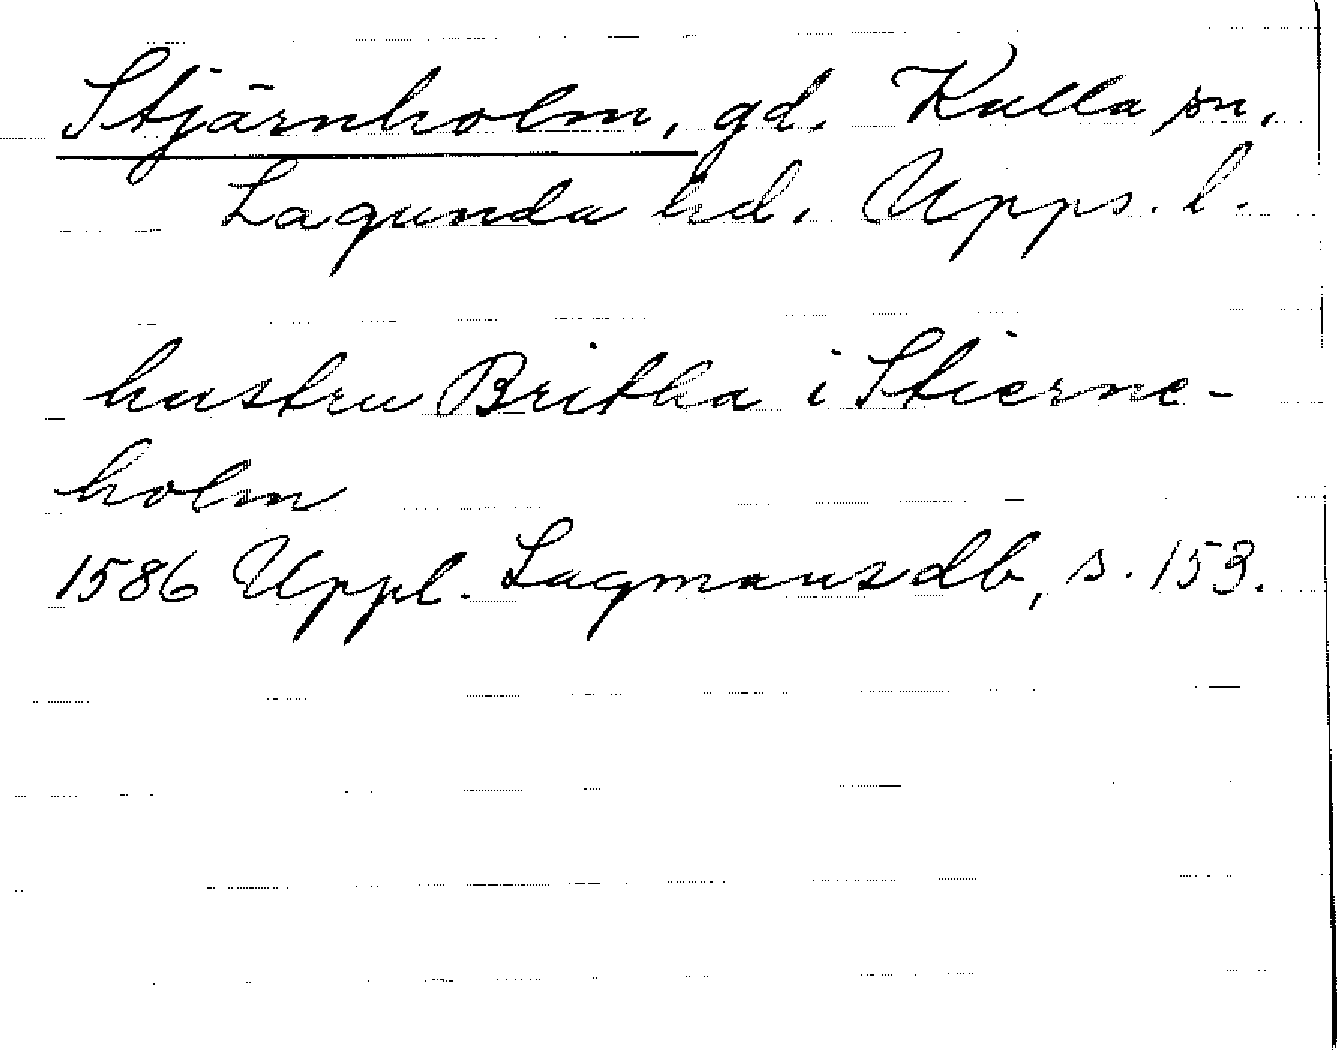 Stjärnholm, gd. Kulla sn,
Lagunda hd. Upps. l.
hustru Britha i Stierne-
holm
1586 Uppl. Lagmansdb, s. 153.